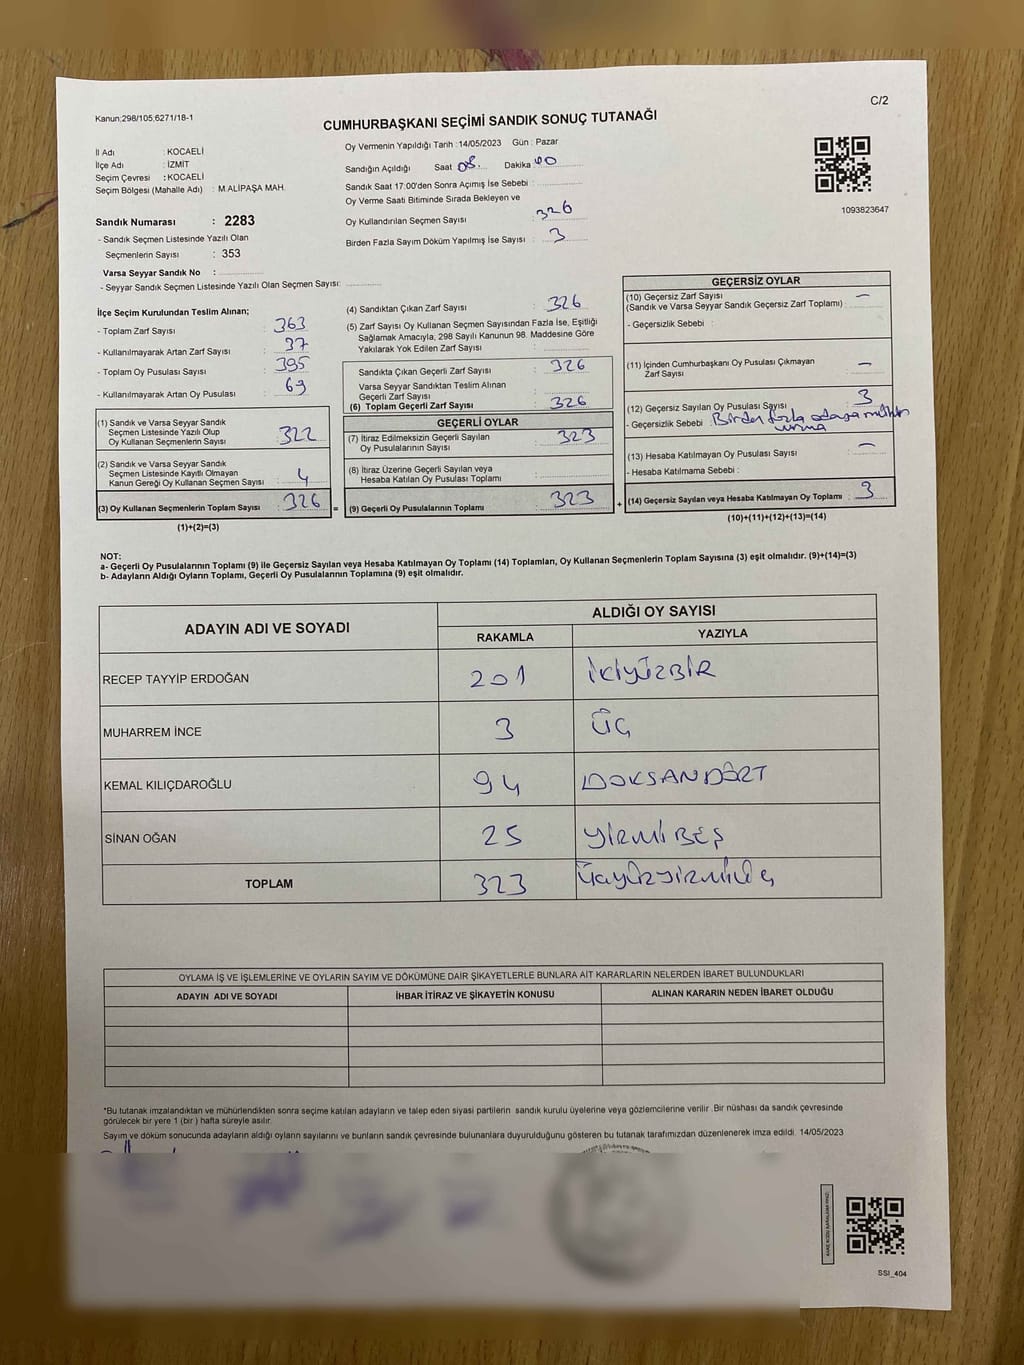 C/2
Kanun:298/105,6271/18-1
CUMHURBAŞKANI SEÇİMİ SANDIK SONUÇ TUTANAĞI
İl Adı : KOCAELİ
İlçe Adı : İZMİT
Seçim Çevresi : KOCAELİ
Seçim Bölgesi (Mahalle Adı) : M.ALİPAŞA MAH.
Sandık Numarası : 2283
- Sandık Seçmen Listesinde Yazılı Olan
Seçmenlerin Sayısı : 353
Varsa Seyyar Sandık No :
- Seyyar Sandık Seçmen Listesinde Yazılı Olan Seçmen Sayısı:
Oy Vermenin Yapıldığı Tarih : 14/05/2023 Gün : Pazar
Sandığın Açıldığı Saat 08. Dakika 00
Sandık Saat 17:00'den Sonra Açımış İse Sebebi :
Oy Verme Saati Bitiminde Sırada Bekleyen ve
Oy Kullandırılan Seçmen Sayısı : 326
Birden Fazla Sayım Döküm Yapılmış İse Sayısı : 3
1093823647
İlçe Seçim Kurulundan Teslim Alınan;
- Toplam Zarf Sayısı : 363
- Kullanılmayarak Artan Zarf Sayısı : 37
- Toplam Oy Pusulası Sayısı : 395
- Kullanılmayarak Artan Oy Pusulası : 69
(1) Sandık ve Varsa Seyyar Sandık
Seçmen Listesinde Yazılı Olup
Oy Kullanan Seçmenlerin Sayısı : 322
(2) Sandık ve Varsa Seyyar Sandık
Seçmen Listesinde Kayıtlı Olmayan
Kanun Gereği Oy Kullanan Seçmen Sayısı : 4
(3) Oy Kullanan Seçmenlerin Toplam Sayısı : 326 =
(1)+(2)=(3)
(4) Sandıktan Çıkan Zarf Sayısı : 326
(5) Zarf Sayısı Oy Kullanan Seçmen Sayısından Fazla İse, Eşitliği
Sağlamak Amacıyla, 298 Sayılı Kanunun 98. Maddesine Göre
Yakılarak Yok Edilen Zarf Sayısı :
Sandıkta Çıkan Geçerli Zarf Sayısı : 326
Varsa Seyyar Sandıktan Teslim Alınan
Geçerli Zarf Sayısı :
(6) Toplam Geçerli Zarf Sayısı : 326
GEÇERLİ OYLAR
(7) İtiraz Edilmeksizin Geçerli Sayılan
Oy Pusulalarının Sayısı : 323
(8) İtiraz Üzerine Geçerli Sayılan veya
Hesaba Katılan Oy Pusulası Toplamı :
(9) Geçerli Oy Pusulalarının Toplamı : 323 +
GEÇERSİZ OYLAR
(10) Geçersiz Zarf Sayısı : —
(Sandık ve Varsa Seyyar Sandık Geçersiz Zarf Toplamı)
- Geçersizlik Sebebi :
(11) İçinden Cumhurbaşkanı Oy Pusulası Çıkmayan
Zarf Sayısı : —
(12) Geçersiz Sayılan Oy Pusulası Sayısı : 3
- Geçersizlik Sebebi : Birden fazla adaya mühür
vurma
(13) Hesaba Katılmayan Oy Pusulası Sayısı : —
- Hesaba Katılmama Sebebi :
(14) Geçersiz Sayılan veya Hesaba Katılmayan Oy Toplamı : 3
(10)+(11)+(12)+(13)=(14)
NOT:
a- Geçerli Oy Pusulalarının Toplamı (9) ile Geçersiz Sayılan veya Hesaba Katılmayan Oy Toplamı (14) Toplamları, Oy Kullanan Seçmenlerin Toplam Sayısına (3) eşit olmalıdır. (9)+(14)=(3)
b- Adayların Aldığı Oyların Toplamı, Geçerli Oy Pusulalarının Toplamına (9) eşit olmalıdır.
ADAYIN ADI VE SOYADI
ALDIĞI OY SAYISI
RAKAMLA YAZIYLA
RECEP TAYYİP ERDOĞAN 201 İKİYÜZBİR
MUHARREM İNCE 3 ÜÇ
KEMAL KILIÇDAROĞLU 94 DOKSANDÖRT
SİNAN OĞAN 25 YİRMİBEŞ
TOPLAM 323 üçyüzyirmiüç
OYLAMA İŞ VE İŞLEMLERİNE VE OYLARIN SAYIM VE DÖKÜMÜNE DAİR ŞİKAYETLERLE BUNLARA AİT KARARLARIN NELERDEN İBARET BULUNDUKLARI
ADAYIN ADI VE SOYADI İHBAR İTİRAZ VE ŞİKAYETİN KONUSU ALINAN KARARIN NEDEN İBARET OLDUĞU
*Bu tutanak imzalandıktan ve mühürlendikten sonra seçime katılan adayların ve talep eden siyasi partilerin sandık kurulu üyelerine veya gözlemcilerine verilir. Bir nüshası da sandık çevresinde
görülecek bir yere 1 (bir) hafta süreyle asılır.
Sayım ve döküm sonucunda adayların aldığı oyların sayılarını ve bunların sandık çevresinde bulunanlara duyurulduğunu gösteren bu tutanak tarafımızdan düzenlenerek imza edildi. 14/05/2023
SSI_404